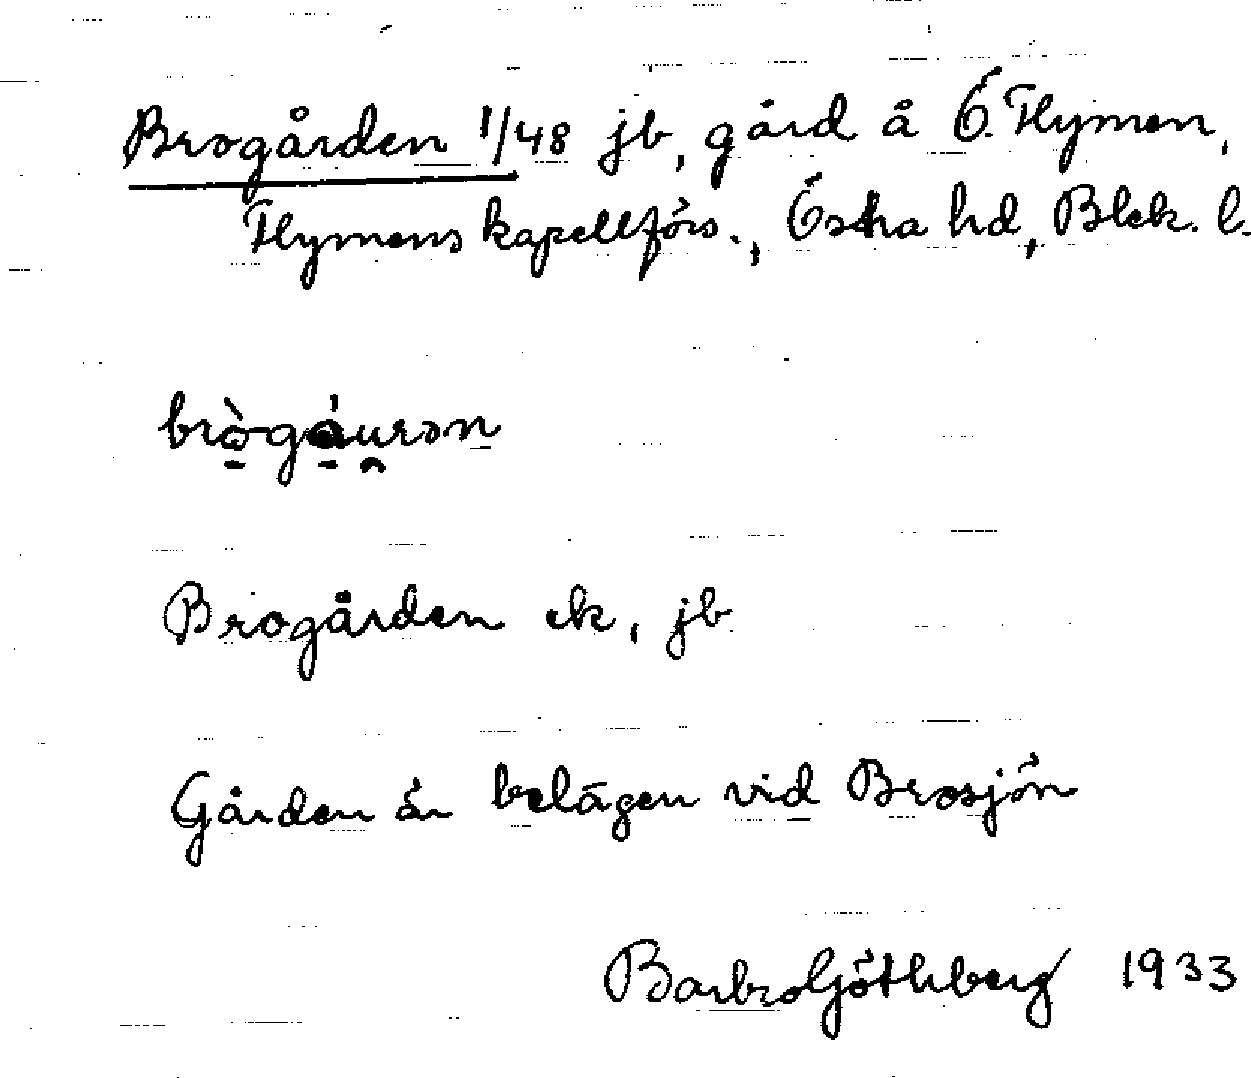 Brogården 1/48 jb, gård å Ö. Flymen,
Flymens kapellförs., Östra hd, Blek. l.
brògáurən
Brogården ek, jb
Gården är belägen vid Brosjön
Barbro Göthberg 1933